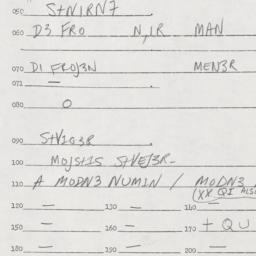 050 StNIRN7
060 D3 FRO N,IR MAN
070 DI FROJ3N MEN3R
071 —
080 O
090 StVIG3R
100 MOJStIS StVEJ3R-
110 A MODN3 NUMIN / MODN3
(XX QI ALSO
120 — 130 — 140
150 — 160 — 170 + QU
180 — 190 — 200 —